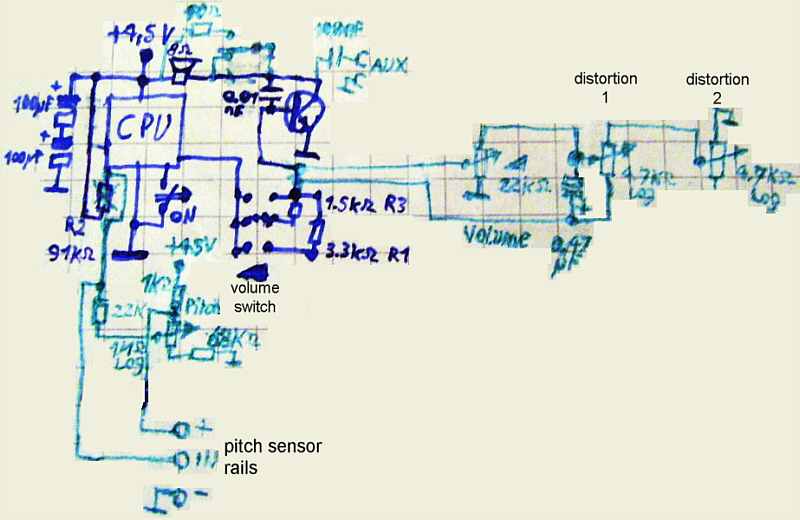 +4,5V
8Ω
100µF
AUX
100µF
CPU
0.01
100µF
R2
91kΩ
ON
1.5kΩ R3
3.3kΩ R1
volume
switch
+4.5V
1kΩ
Pitch
22K
Log
68KΩ
+
pitch sensor
rails
-
22KΩ
Volume
0.47
µF
distortion
1
4.7KΩ
Log
distortion
2
4.7KΩ
Log